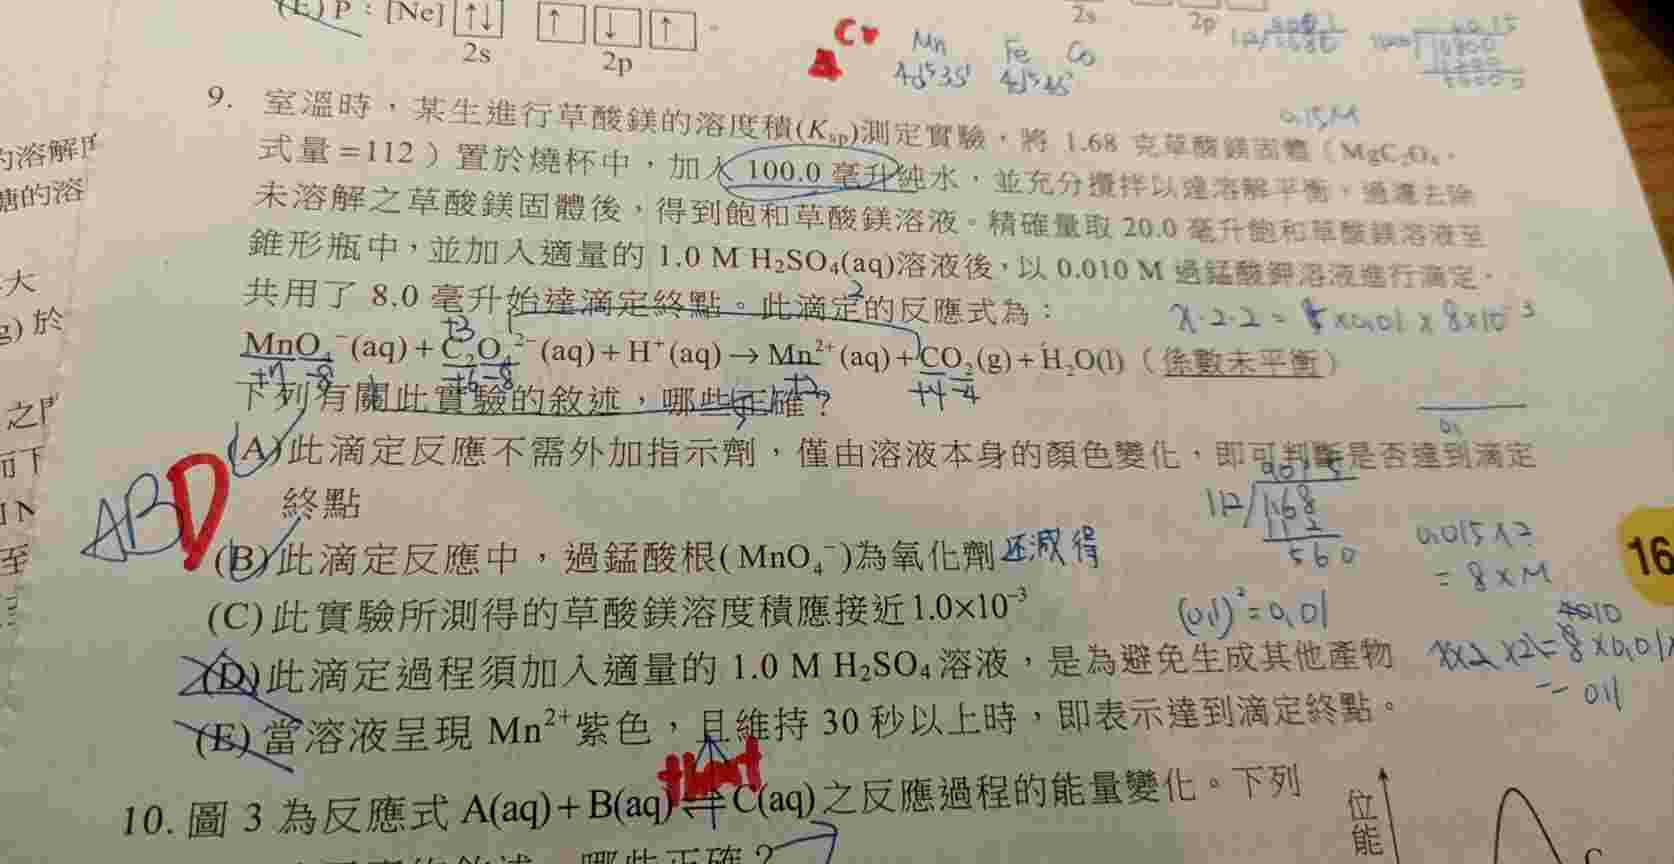 (E) P：[Ne] ↑↓ ↑ ↓ ↑ 。
2s 2p
2s 2p
Cr
Mn Fe Co
的溶解度
糖的溶
大
g) 於
之
而下
至
9. 室溫時，某生進行草酸鎂的溶度積(Ksp)測定實驗，將 1.68 克草酸鎂固體（MgC₂O₄，
式量=112）置於燒杯中，加入 100.0 毫升純水，並充分攪拌以達溶解平衡，過濾去除
未溶解之草酸鎂固體後，得到飽和草酸鎂溶液。精確量取 20.0 毫升飽和草酸鎂溶液至
錐形瓶中，並加入適量的 1.0 M H₂SO₄(aq)溶液後，以 0.010 M 過錳酸鉀溶液進行滴定，
共用了 8.0 毫升始達滴定終點。此滴定的反應式為：
MnO₄⁻(aq)+C₂O₄²⁻(aq)+H⁺(aq)→Mn²⁺(aq)+CO₂(g)+H₂O(l)（係數未平衡）
+7 -8 +3 +6 -8 +2 +4 -4
下列有關此實驗的敘述，哪些正確？
(A)此滴定反應不需外加指示劑，僅由溶液本身的顏色變化，即可判斷是否達到滴定
終點
ABD
(B)此滴定反應中，過錳酸根(MnO₄⁻)為氧化劑 还減得
(C)此實驗所測得的草酸鎂溶度積應接近1.0×10⁻³
(D)此滴定過程須加入適量的 1.0 M H₂SO₄溶液，是為避免生成其他產物
(E)當溶液呈現 Mn²⁺紫色，且維持 30 秒以上時，即表示達到滴定終點。
0.15M
112 1.68
112
560
0.015×2
= 8×M
(0.1)²=0.01
16
10. 圖 3 為反應式 A(aq)+B(aq)⇌C(aq)之反應過程的能量變化。下列
哪些正確？
位能